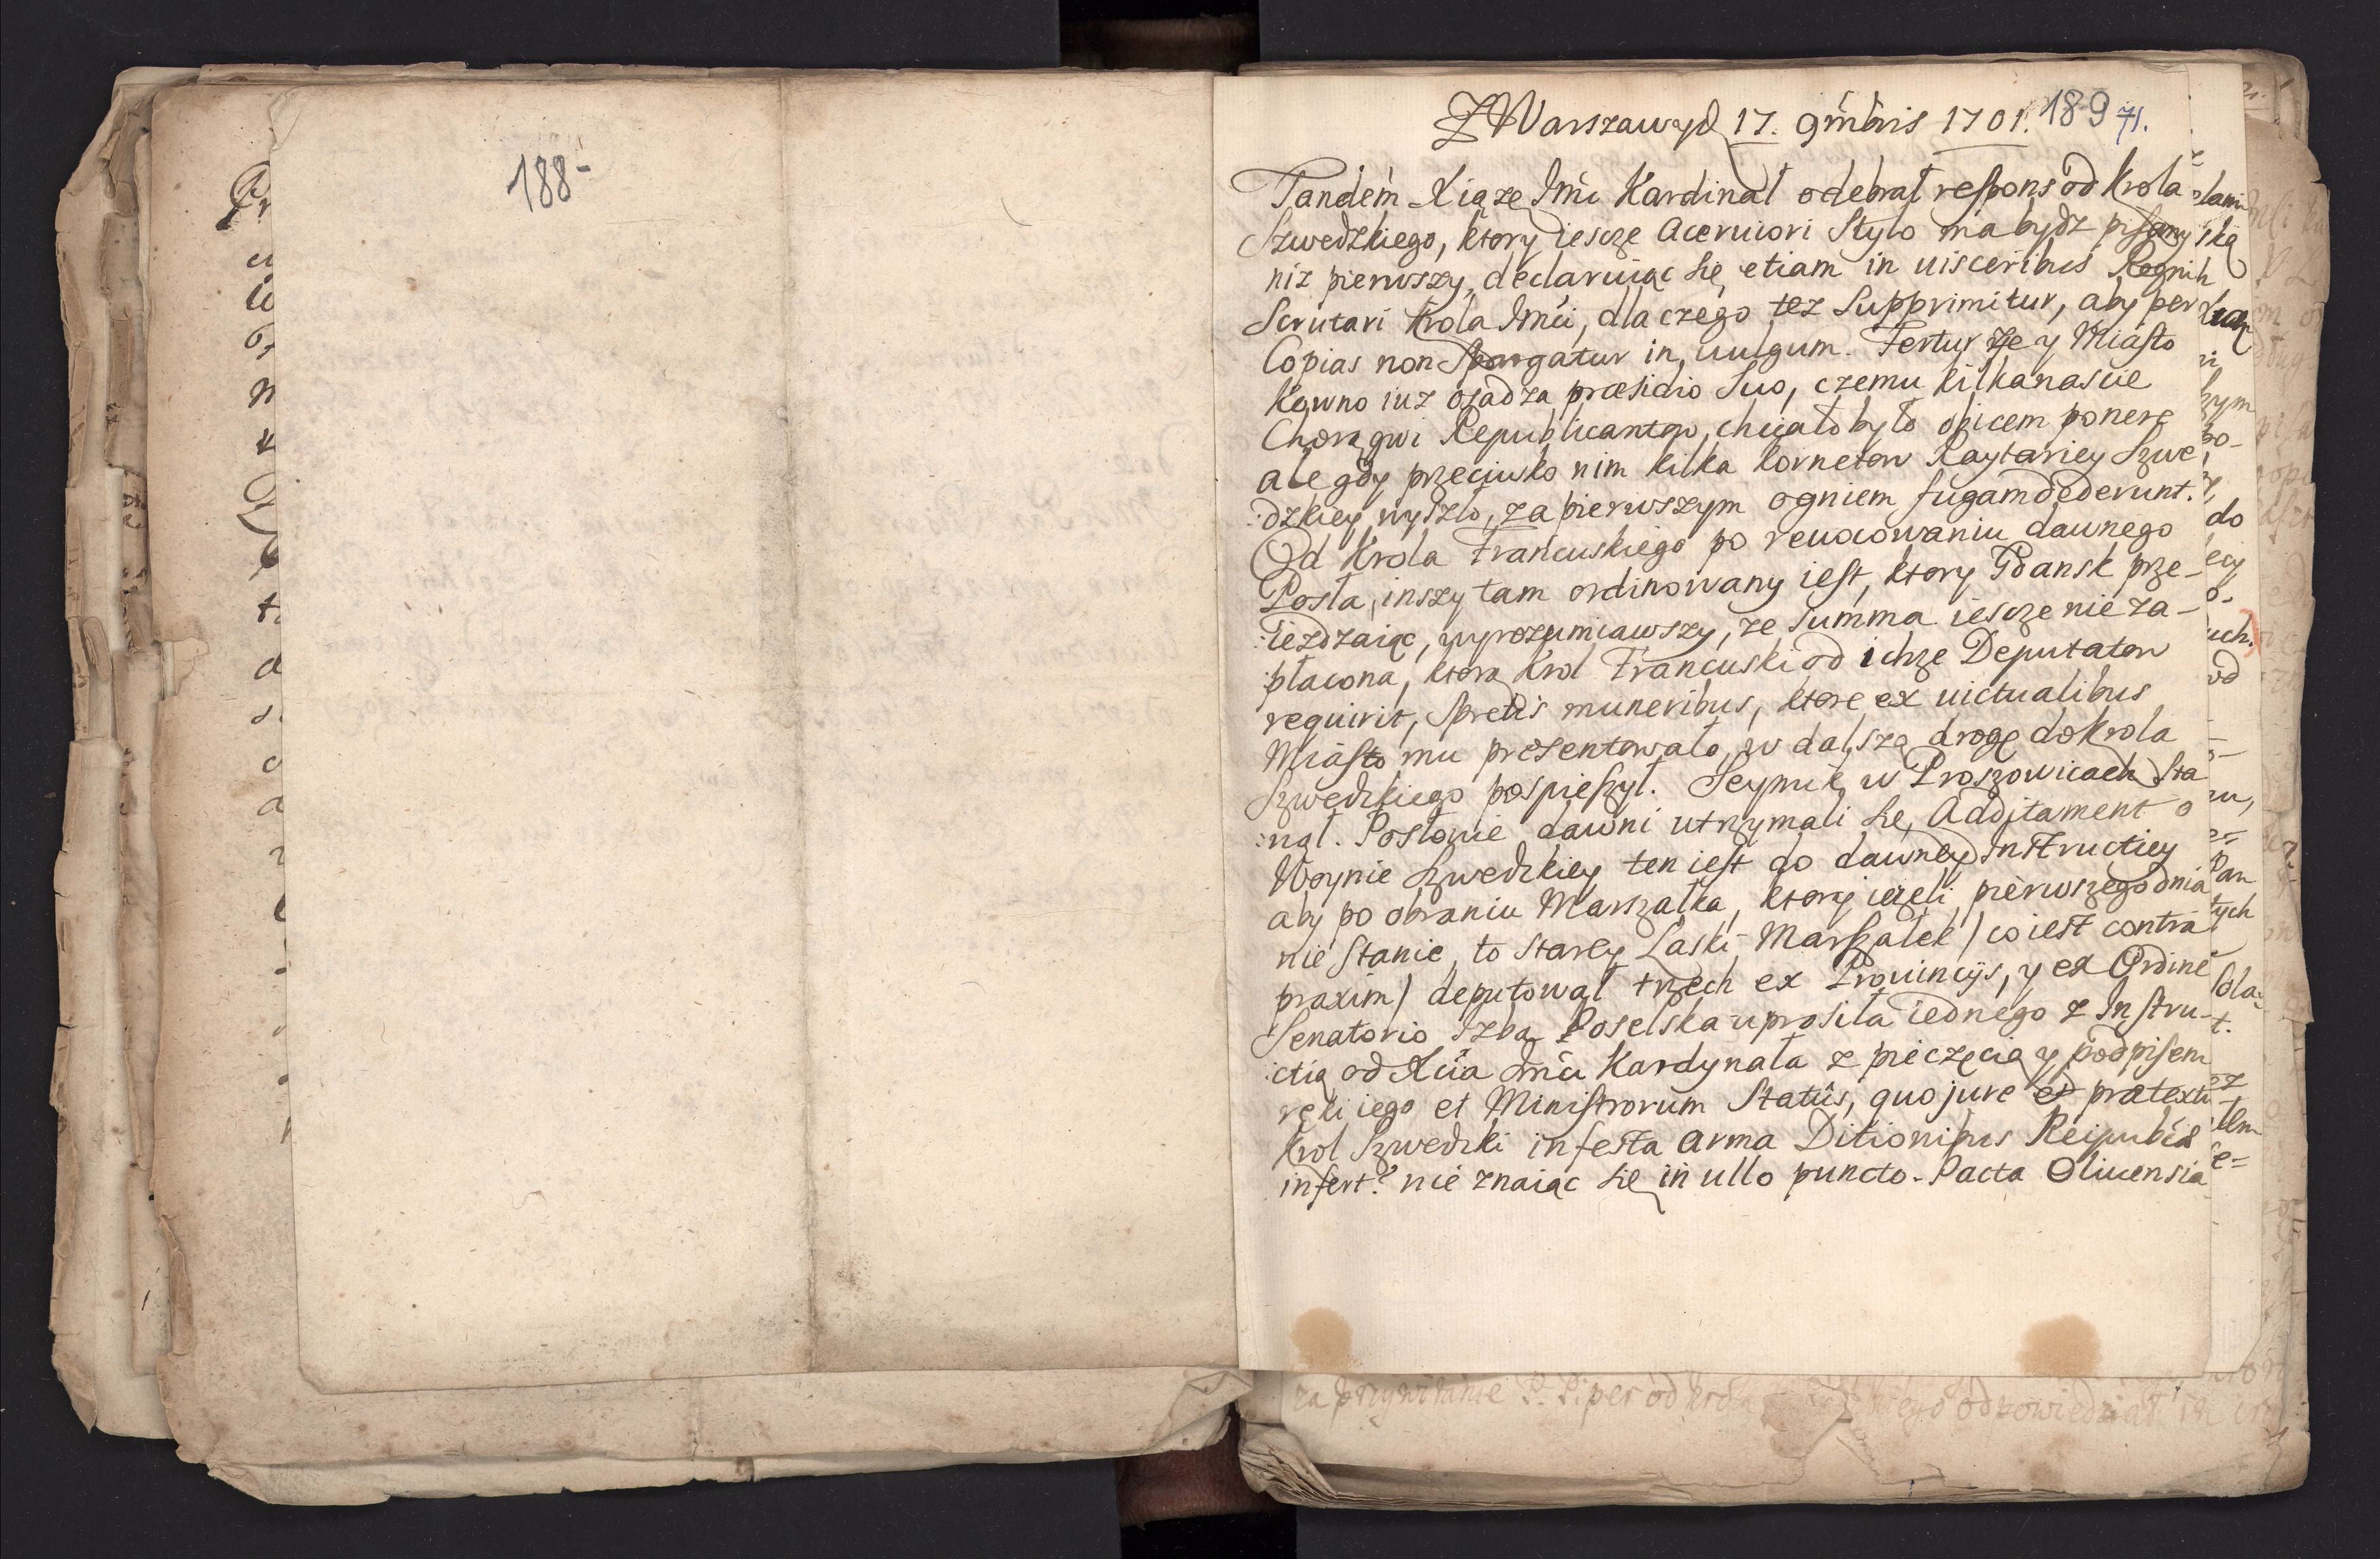 188-
Z Warszawy d 17. 9mbris 1701. 189 71.
Tandem Xiąze Jmć Kardinał odebrał respons od Krola
Szwedzkiego, ktory iescze acerviori Stylo ma bydz pisany
niz pierwszy, declaruiąc się etiam in uisceribus Regni
Scrutari Krola Jmći, dla czego tez Supprimitur, aby per
Copias non Spargatur in uulgum. Fertur ze y Miasto
Kowno iuz osadza præsidio Suo, czemu kilkanascie
Chorągwi Republicantow, chciało było obicem ponere
ale gdy przeciwko nim kilka kornetow Raytariey Szwe,
:dzkiey wyszło, za pierwszym ogniem fugam dederunt.
Od Krola Francuskiego po reuocowaniu dawnego
Posła, inszy tam ordinowany iest, ktory Gdansk prze-
:iezdzaiąc, wyrozumiawszy, ze Summa iescze nie za-
płacona, ktorą Krol Francuski od ichze Deputatow
requirit, Spretis muneribus, ktore ex uictualibus
Miasto mu presentowało, w dalszą drogę do Krola
Szwedzkiego pospieszył. Seymik w Proszowicach Sta
:nął. Posłowie dawni utrzymali się, Additament o
Woynie Szwedzkiey ten iest do dawney Instructiey
aby po obraniu Marszałka, ktory iezeli pierwszego dnia
nie Stanie, to Starey Laski Marszałek / co iest contra
praxim / deputował trzech ex Prouincijs, y ex Ordine
Senatorio Izba Poselska uprosiła iednego z Instru-
:ctią od Xcia Jmći Kardynała z pieczęcią y podpisem
ręki iego et Ministrorum Statûs, quo jure et prætextu
Krol Szwedzki infesta arma Ditionibus Reipublcæ
infert? nie znaiąc się in ullo puncto. Pacta Oliuensia